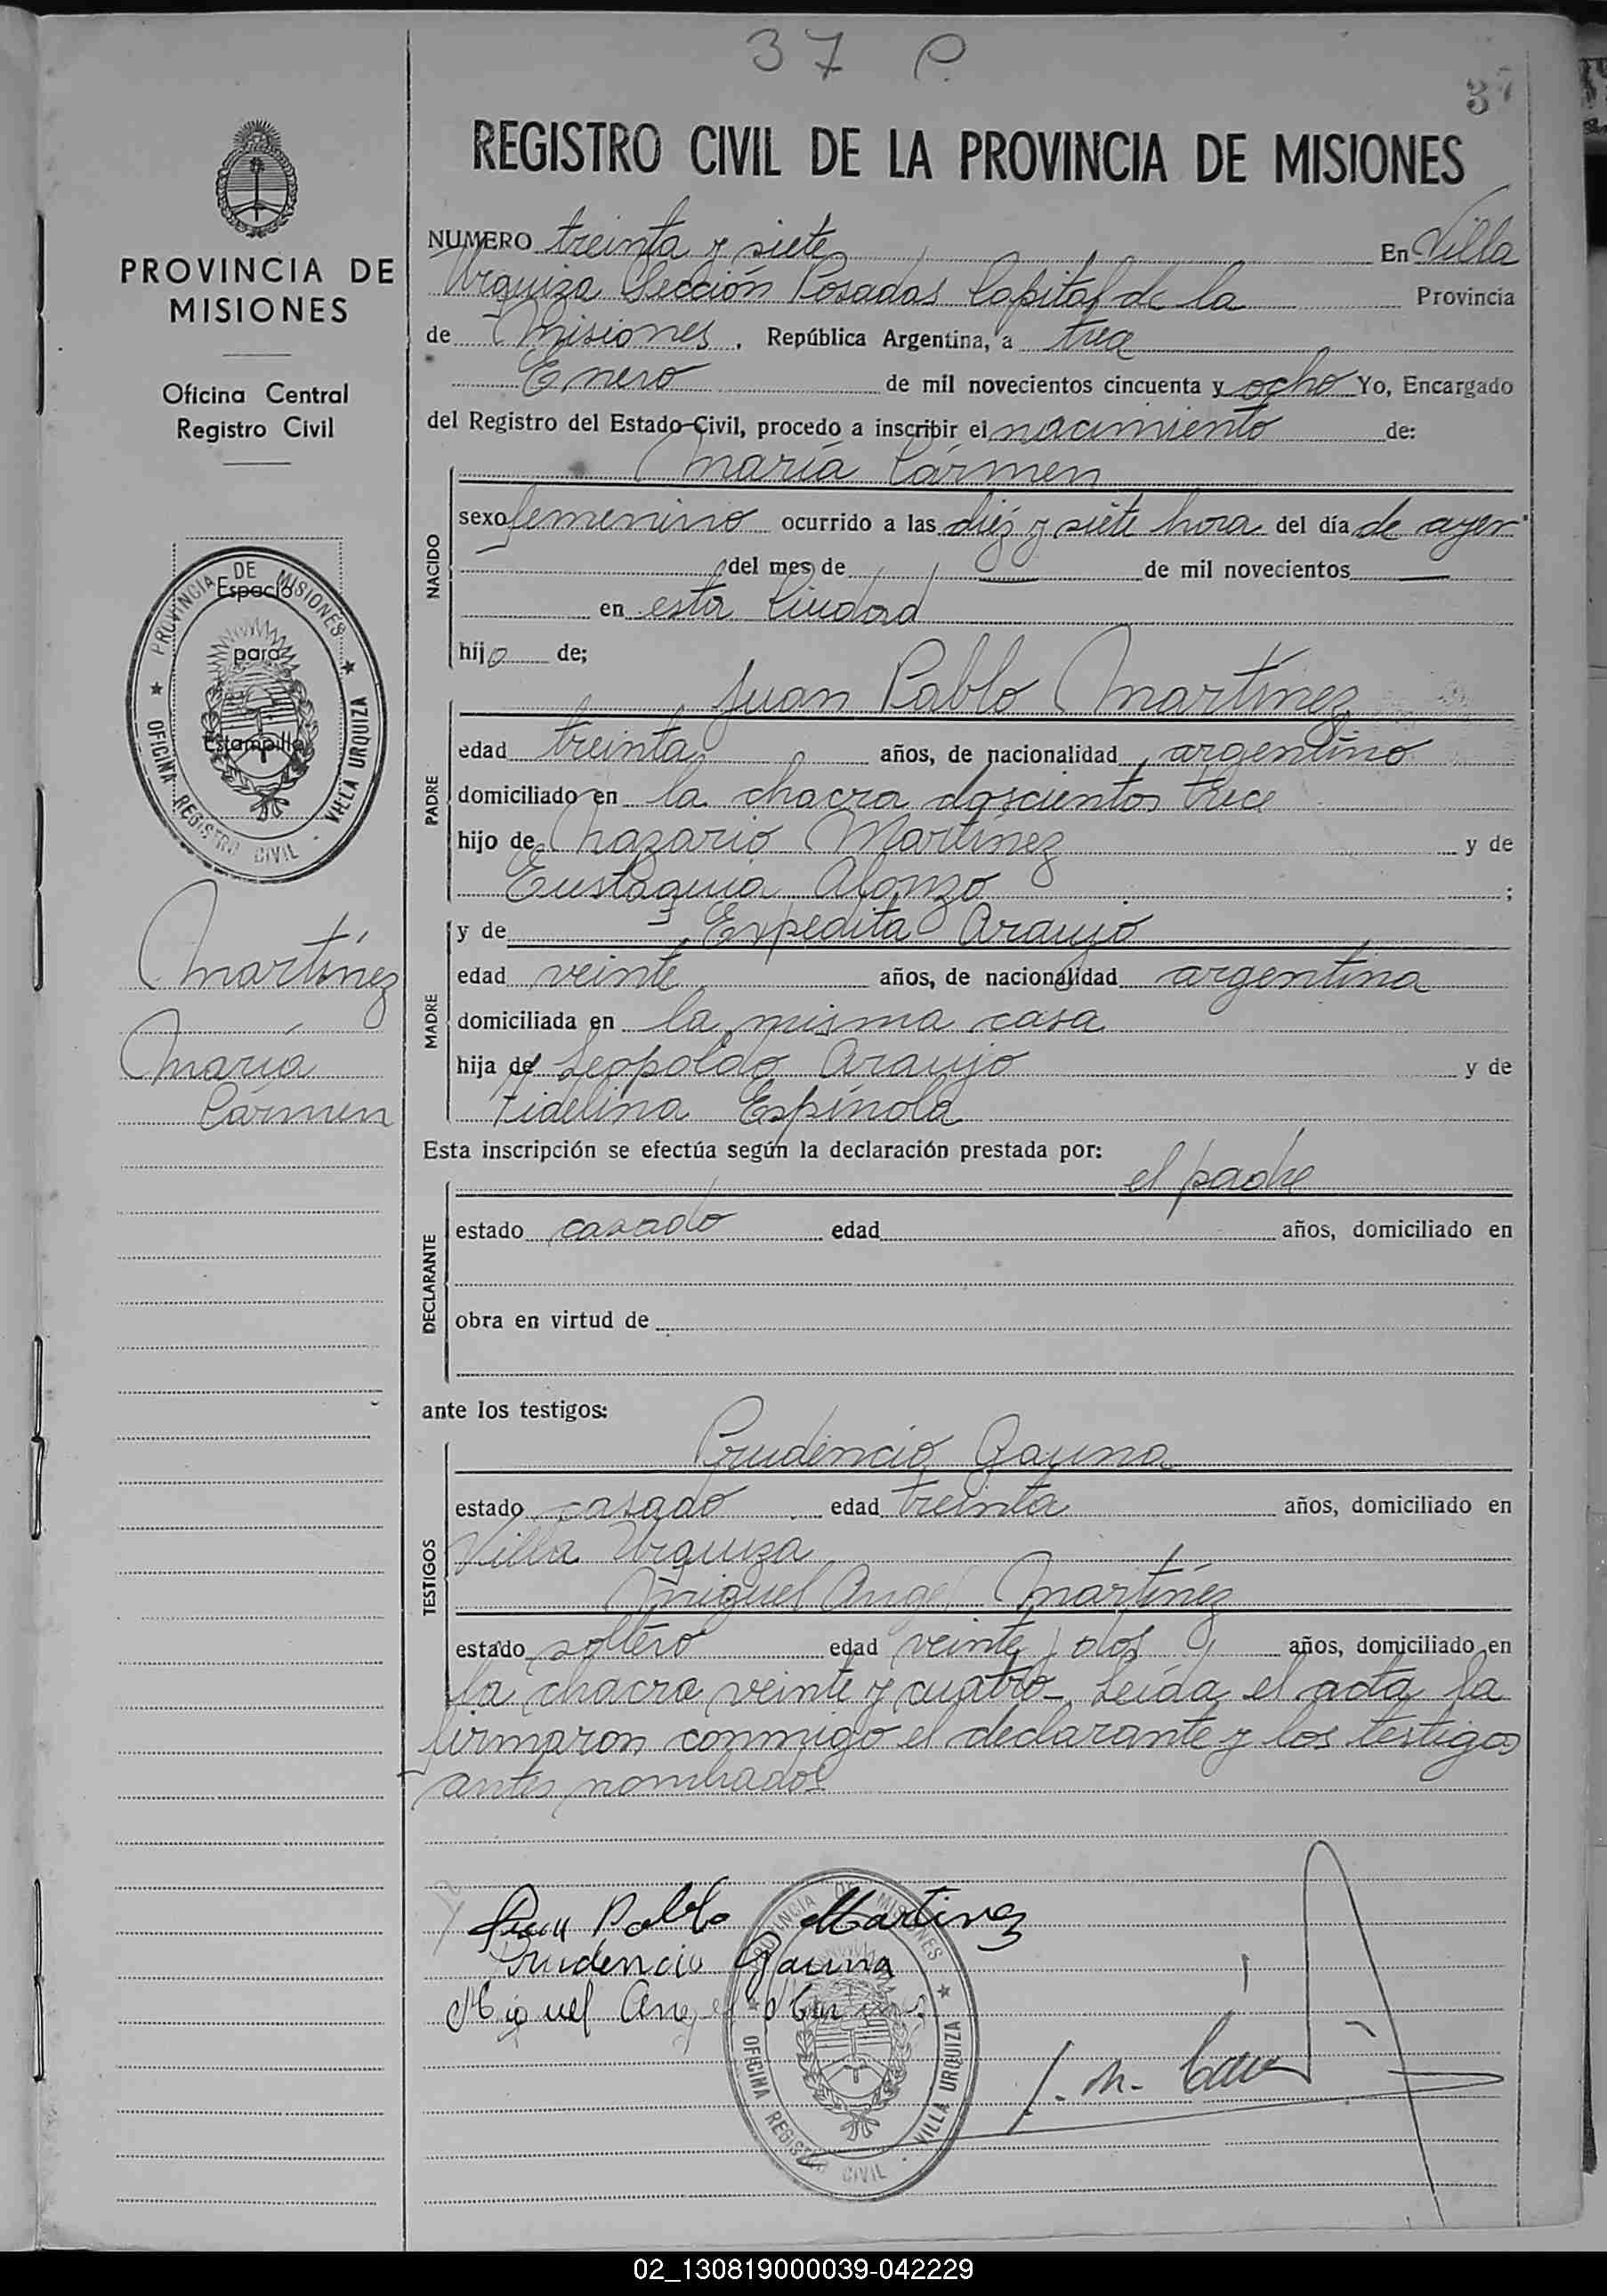 37 P.
37
REGISTRO CIVIL DE LA PROVINCIA DE MISIONES
PROVINCIA DE
MISIONES
Oficina Central
Registro Civil
PROVINCIA DE MISIONES
Espacio
para
Estampilla
OFICINA REGISTRO CIVIL - VILLA URQUIZA
Martínez
María
Cármen
NUMERO treinta y siete En Villa
Urquiza Sección Posadas Capital de la Provincia
de Misiones. República Argentina, a tres
Enero de mil novecientos cincuenta y ocho Yo, Encargado
del Registro del Estado Civil, procedo a inscribir el nacimiento de:
NACIDO
María Cármen
sexo femenino ocurrido a las diez y siete hora del día de ayer
del mes de — de mil novecientos —
en esta Ciudad
hijo de;
PADRE
Juan Pablo Martínez
edad treinta años, de nacionalidad argentino
domiciliado en la chacra doscientos trece
hijo de Nazario Martínez y de
Eustaquia Alonzo ;
MADRE
y de Expedita Araujo
edad veinte años, de nacionalidad argentina
domiciliada en la misma casa
hija de Leopoldo Araujo y de
Fidelina Espínola
Esta inscripción se efectúa según la declaración prestada por:
DECLARANTE
el padre
estado casado edad años, domiciliado en
obra en virtud de
ante los testigos:
TESTIGOS
Prudencio Gauna
estado casado edad treinta años, domiciliado en
Villa Urquiza
Miguel Angel Martínez
estado soltero edad veinte y dos años, domiciliado en
la chacra veinte y cuatro- Leída el acta la
firmaron conmigo el declarante y los testigos
antes nombrados
Juan Pablo Martinez
Prudencio Gauna
Miguel Angel
PROVINCIA DE MISIONES
OFICINA REGISTRO CIVIL - VILLA URQUIZA
02_130819000039-042229